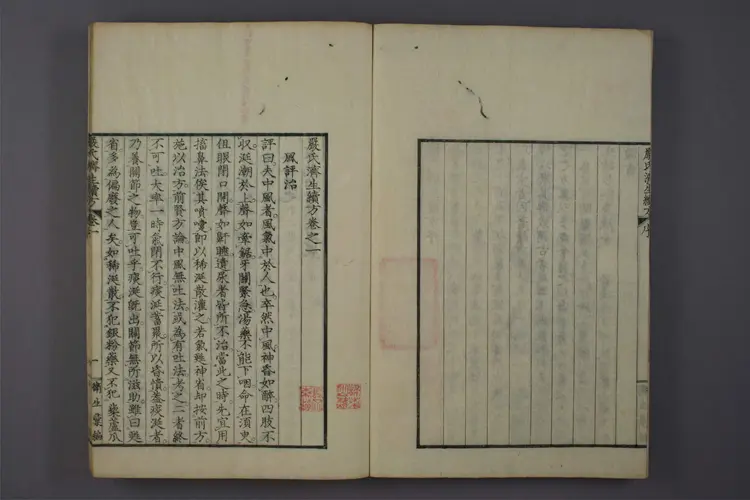 嚴氏濟生續方 序
嚴氏濟生續方卷之一
風評治
評曰夫中風者風氣中於人也卒然中風神昏如醉四肢不
收涎潮於上聲如牽鋸牙關緊急湯藥不能下咽命在須臾
但眼閉口開聲如鼾睡遺尿者皆所不治當此之時先宜用
搐鼻法俟其噴嚏即以稀涎散灌之若氣甦神省却按前方
施以治方前賢方論中風無吐法或為有吐法考之二者終
不可吐大率一時氣閉不行痰涎當聚所以昏憒蓋痰涎者
乃養關節之物豈可吐乎痰涎旣出關節無所滋助雖曰甦
省多為偏廢之人矣如稀涎散不犯銀粉藥又不犯藜蘆瓜
嚴氏濟生續方 卷一 一 衛生彙編